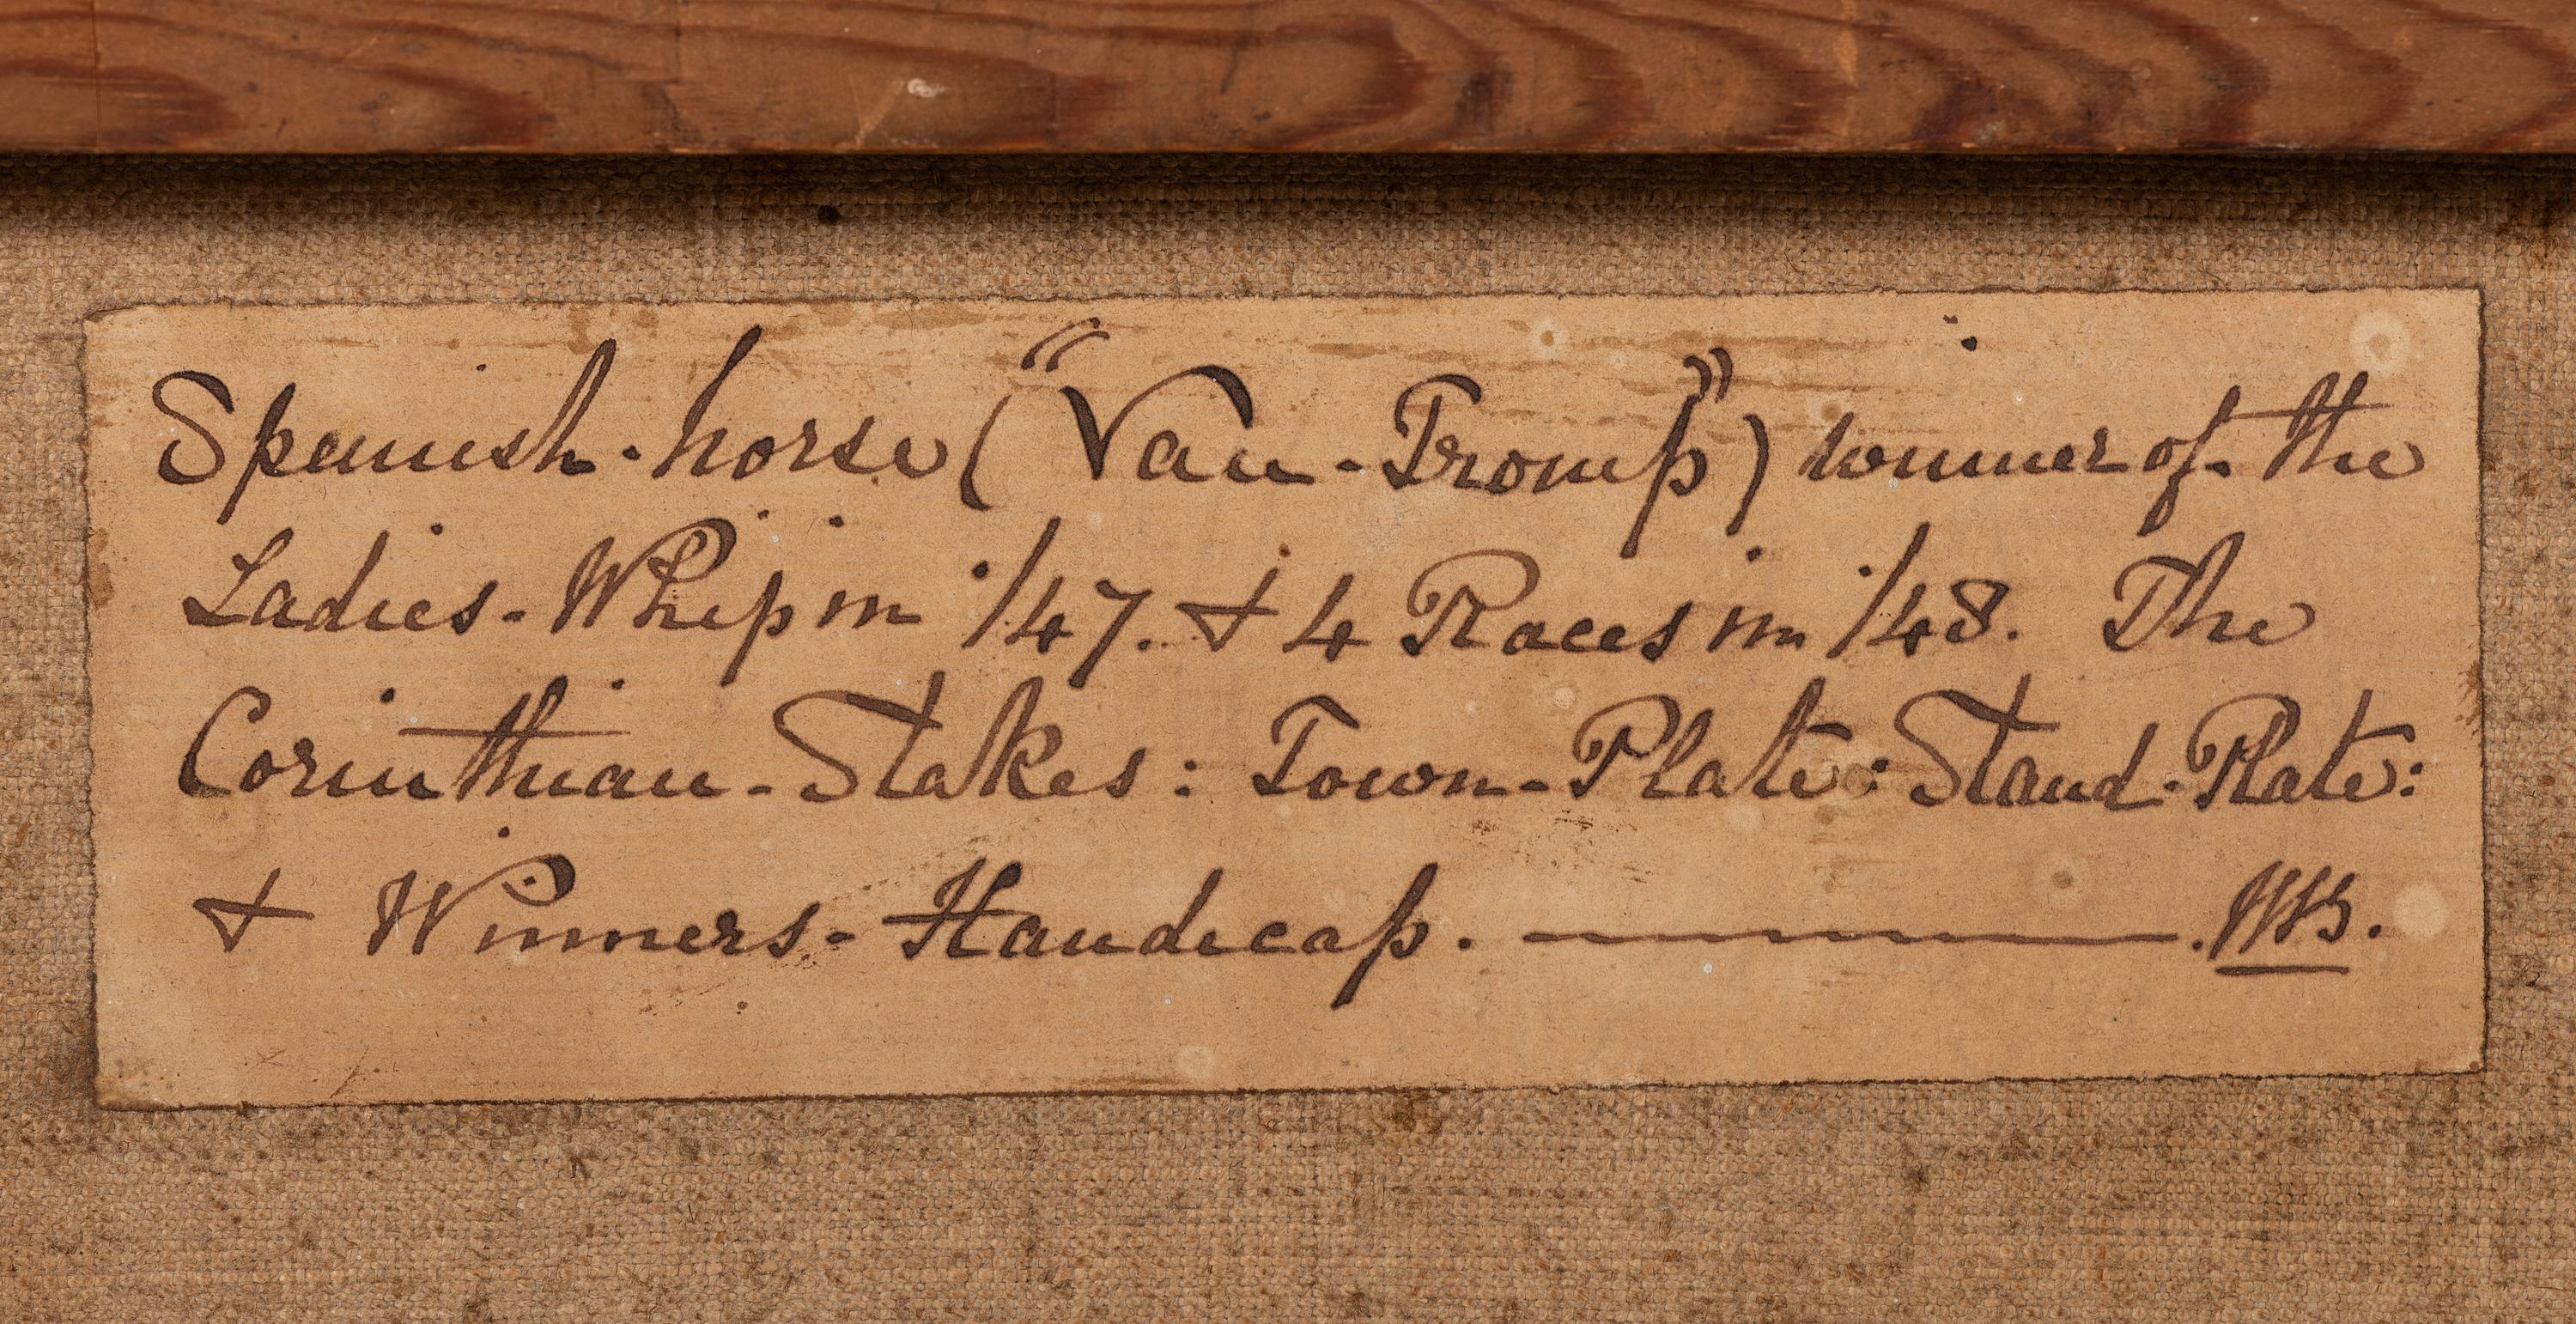 Spanish-horse ("Van-Tromp") winner of the
Ladies-Whip in /47. & 4 Races in /48. The
Corinthian-Stakes: Town-Plate: Stand-Plate:
& Winners-Handicap. ———